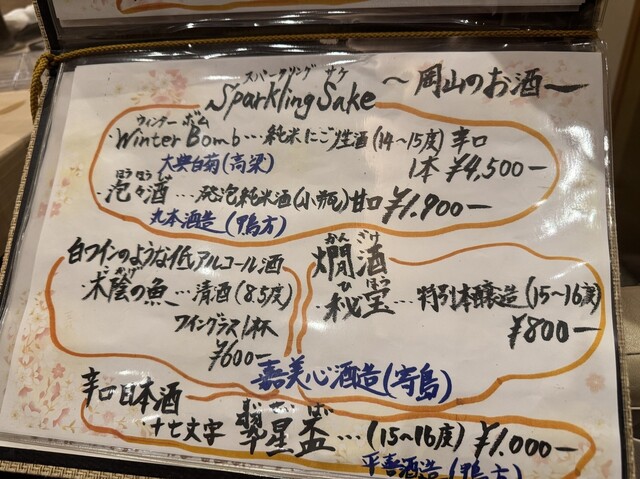 スパークリング サケ
Sparkling Sake 〜岡山のお酒〜
ウィンター ボム
・Winter Bomb…純米にごり生酒(14〜15度)辛口
大典白菊(高梁) 1本 ¥4,500-
ほうほうしゅ
・泡々酒…発泡純米酒(小瓶)甘口 ¥1,900-
丸本酒造(鴨方)
白ワインのような低アルコール酒
こかげ
・木陰の魚…清酒(8.5度)
ワイングラス1杯
¥600-
かん ざけ
燗酒
ひ ほう
秘宝…特別本醸造(15〜16度)
¥800-
嘉美心酒造(寄島)
辛口日本酒
・十七文字 翠星盃…(15〜16度)¥1,000-
平喜酒造(鴨方)